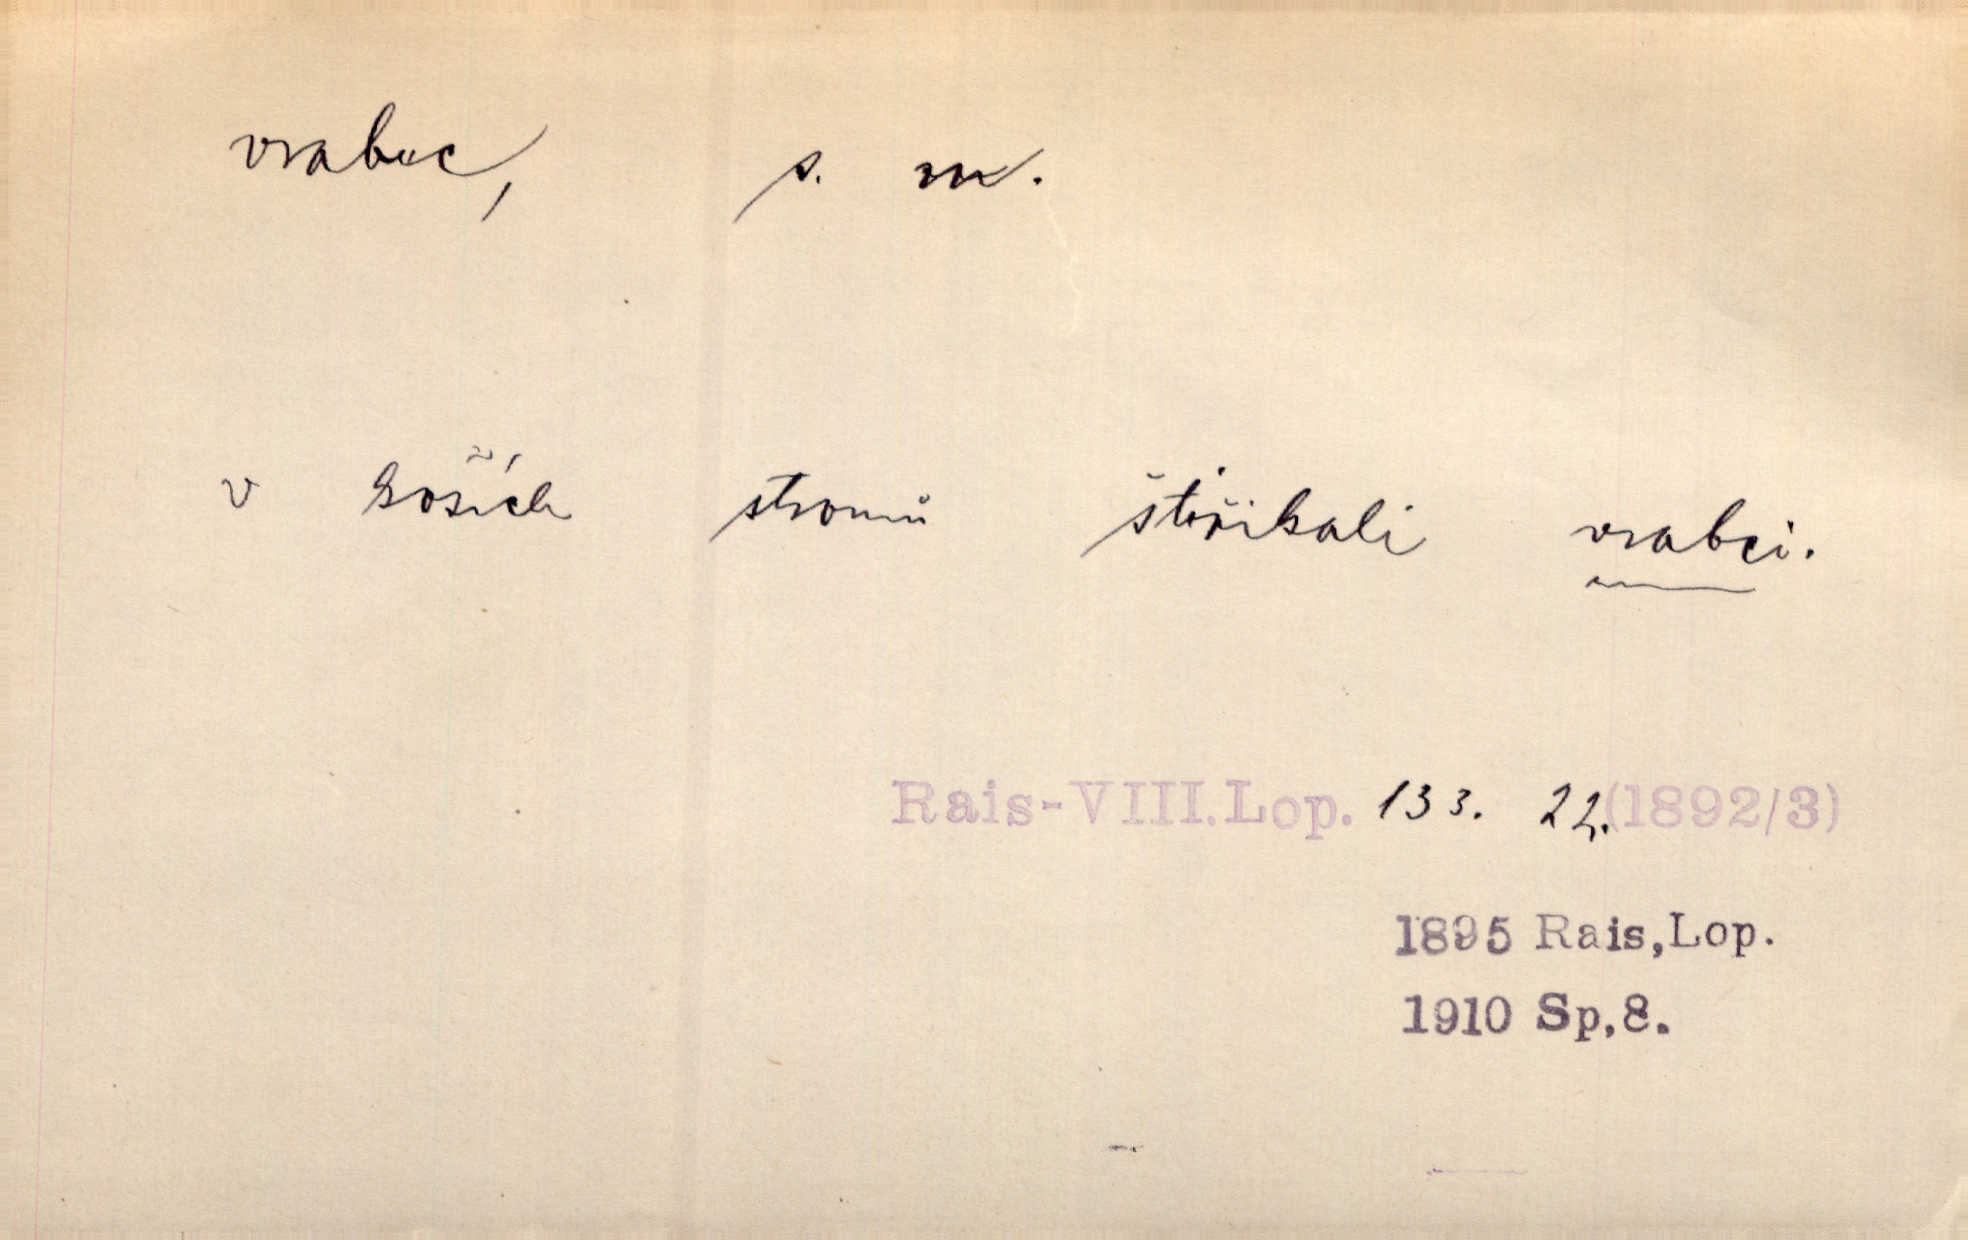 vrabec, s. m.
v koších stromů štěbkali vrabci.
Rais-VIII.Lop. 133. 22.(1892/3)
1895 Rais,Lop.
1910 Sp,8.